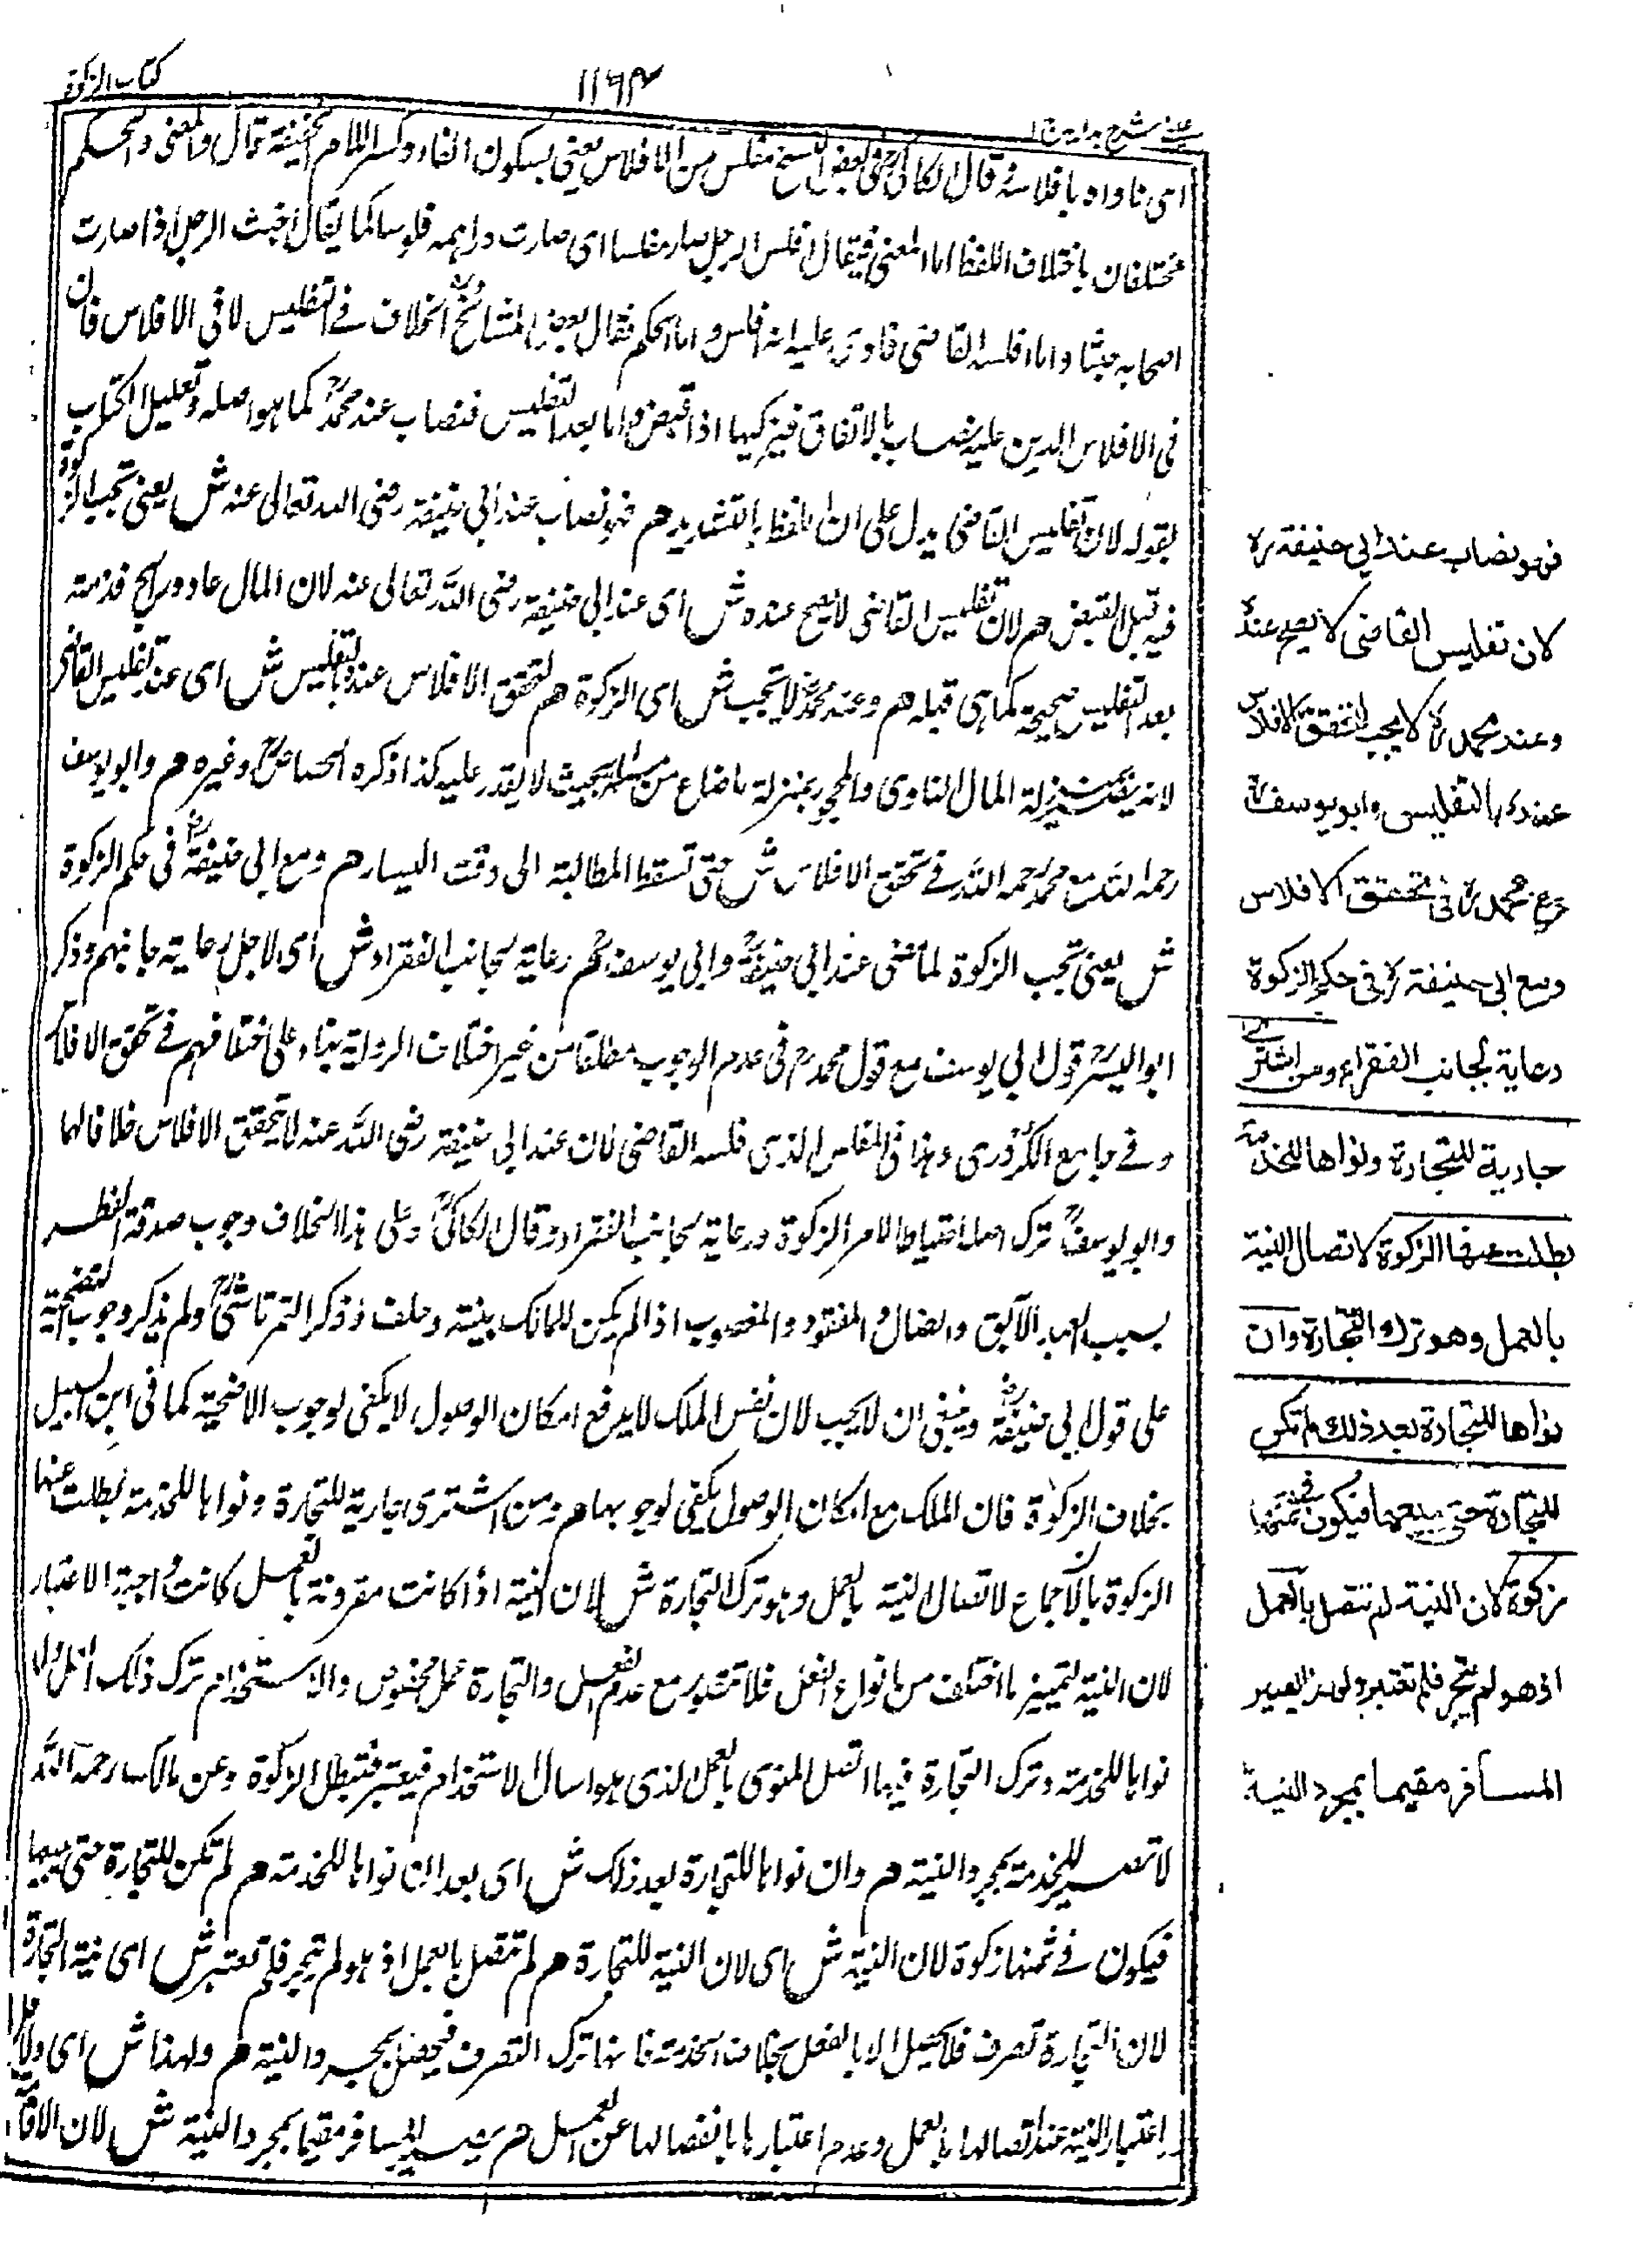 كتاب الزكوة
١١٦٣
عينى شرح هداية ج١
اى ناداه بافلاسه قال الكاكى وفى بعض النسخ مفلس من الافلاس يعنى بسكون الفاء وكسر اللام الخفيفة قال والمعنى والحكم
مختلفان باختلاف اللفظ اما المعنى فيقال افلس الرجل صار مفلسا اى صارت دراهمه فلوسا كما يقال اخبث الرجل اذا صارت
اصحابه خبثا واما افلسه القاضى نادى عليه انه افلس واما الحكم فقال بعض المشائخ الخلاف فے التفليس لا فى الافلاس فان
فى الافلاس الدين عليه نصاب بالاتفاق فيزكيها اذا قبض واما بعد التفليس فنصاب عند محمد كما هو اصله وتعليل الكتاب
بقوله لان تفليس القاضى يدل على ان اللفظ بالتشديد هم فهو نصاب عند ابى حنيفة رضى الله تعالى عنه ش يعنى تجب الزكوة
فيه قبل القبض هم لان تفليس القاضى لا يصح عنده ش اى عند ابى حنيفة رضى الله تعالى عنه لان المال غاد ورائح فذمته
بعد التفليس صحيحة كما هى قبله هم وعند محمد لا تجب ش اى الزكوة هم لتحقق الافلاس عنده بالتفليس ش اى عند تفليس القاضى
لانه بمنزلة المال التاوى والمجحور بمنزلة ما ضاع من بحيث لا يقدر عليه كذا ذكره الجصاص وغيره هم وابو يوسف
رحمه الله مع محمد رحمه الله فے تحقق الافلاس ش حتى تسقط المطالبة الى وقت اليسار هم ومع ابى حنيفة فى حكم الزكوة
ش يعنى تجب الزكوة لما مضى عند ابى حنيفة وابى يوسف هم رعاية لجانب الفقراء ش اى لاجل رعاية جانبهم وذكر
ابو اليسر قول ابى يوسف مع قول محمد فى عدم الوجوب مطلقا من غير اختلاف الرواية بناء على اختلافهم فے تحقق الافلاس
وفے جامع الكردرى وهذا فى المفلس الذى فلسه القاضى لان عند ابى حنيفة رضى الله عنه لا يتحقق الافلاس خلافا لهما
وابو يوسف ترك اصله احتياطا لامر الزكوة ورعاية لجانب الفقراء وقال الكاكى وعلى هذا الخلاف وجوب صدقة الفطر
بسبب العبد الآبق والضال والمفقود والمغصوب اذا لم يكن للمالك بينة وحلف ذكر التمرتاشى ولم يذكر وجوب التضحية
على قول ابى حنيفة وينبغى ان لا يجب لان نفس الملك لا يدفع امكان الوصول لا يكفى لوجوب الاضحية كما فى ابن السبيل
بخلاف الزكوة فان الملك مع امكان الوصول يكفى لوجوبها هم ومن اشترى جارية للتجارة ونواها للخدمة بطلت عنها
الزكوة بالاجماع لاتصال النية بالعمل وهو ترك التجارة ش لان النية اذا كانت مقرونة بالعمل كانت واجبة الاعتبار
لان النية لتمييز ما اختلف من انواع الفعل فلا تتصور مع عدم الفعل والتجارة عمل مخصوص والاستخدام ترك ذلك
نواها للخدمة وترك التجارة فيها اتصل المنوى بالعمل الذى هو امساك الاستخدام فيعتبر فتبطل الزكوة وعن مالك رحمه الله
لا تصير للخدمة بمجرد النية هم وان نواها للتجارة بعد ذلك ش اى بعد ان نواها للخدمة هم لم تكن للتجارة حتى يبيعها
فيكون فے ثمنها زكوة لان النية ش اى لان النية للتجارة هم لم تتصل بالعمل اذ هو لم يتجر فلم تعتبر ش اى نية التجارة
لان التجارة تصرف فلا تحصل الا بالفعل بخلاف الخدمة فانها ترك التصرف فيحصل بمجرد النية هم ولهذا ش اى ولاجل
اعتبار النية عند اتصالها بالعمل وعدم اعتبارها بانفصالها عن العمل هم يصير المسافر مقيما بمجرد النية ش لان الاقامة
فهو نصاب عند ابي حنيفة رہ
لان تفليس القاضى لا يصح عندہ
وعند محمد رہ لا يجب لتحقق الافلاس
عندہ بالتفليس وابو يوسف رہ
مع محمد رہ فى تحقق الافلاس
ومع ابى حنيفة رہ فى حكم الزكوة
رعاية لجانب الفقراء ومن اشترى
جارية للتجارة ونواها للخدمة
بطلت عنها الزكوة لاتصال النية
بالعمل وهو ترك التجارة وان
نواها للتجارة بعد ذلك لم تكن
للتجارة حتى يبيعها فيكون فى ثمنها
زكوة لان النية لم تتصل بالعمل
اذ هو لم يتجر فلم تعتبر ولهذا يصير
المسافر مقيما بمجرد النية